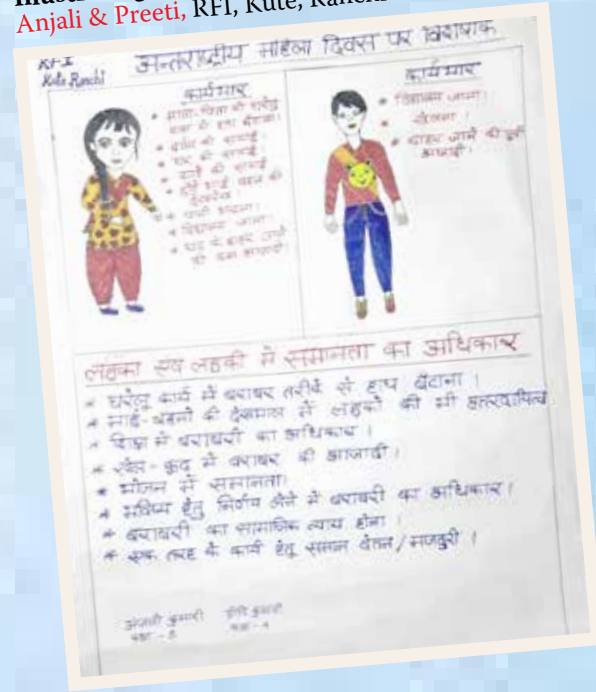 Anjali & Preeti, RFI, Kute, Ranchi
RF-I
Kute Ranchi
अन्तर्राष्ट्रीय महिला दिवस पर
कार्यभार
माता-पिता को घरेलू
बर्तन की सफाई
घर की सफाई
की सफाई
भाई बहन की
पानी भरना
विद्यालय जाना।
घर से बाहर जाने
की कम आजादी।
कार्यभार
विद्यालय जाना।
खेलना।
बाहर जाने की पूरी
आजादी।
लड़का एवं लड़की में समानता का अधिकार
* घरेलू कार्य में बराबर तरीके से हाथ बँटाना।
* भाई-बहनों की देखभाल में लड़कों की भी उत्तरदायित्व
* शिक्षा में बराबरी का अधिकार।
* खेल-कूद में बराबर की आजादी।
* भोजन में समानता।
* भविष्य हेतु निर्णय लेने में बराबरी का अधिकार।
* बराबरी का सामाजिक न्याय होना।
* एक तरह के कार्य हेतु समान वेतन/मजदूरी।
अंजली कुमारी प्रीति कुमारी
कक्षा - कक्षा -